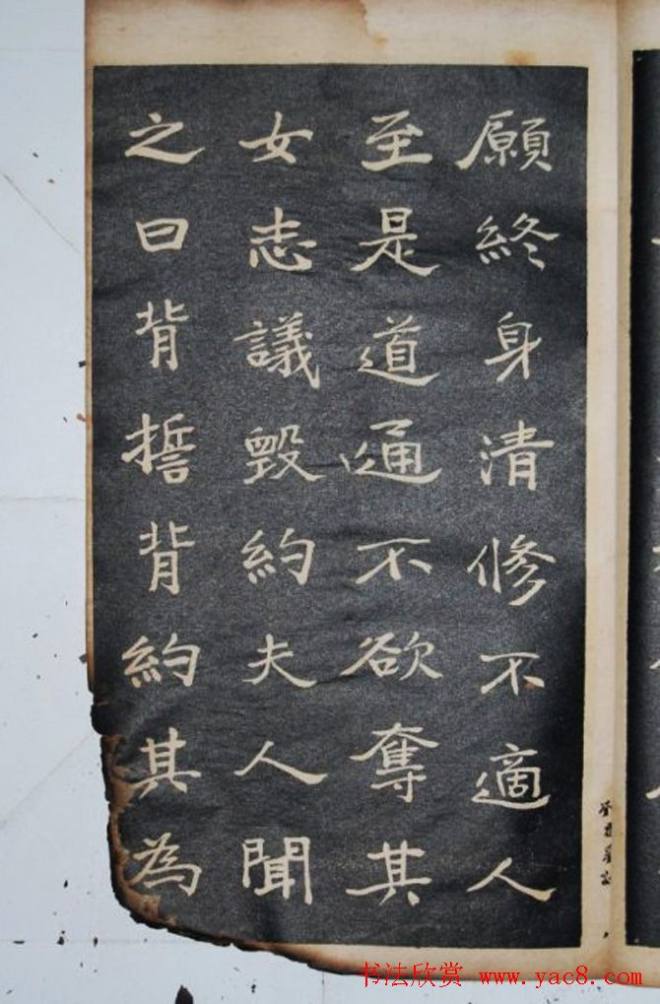 願終身清修不適人
至是道通不欲奪其
女志議毀約夫人聞
之曰背誓背約其為
书法欣赏 www.yac8.com